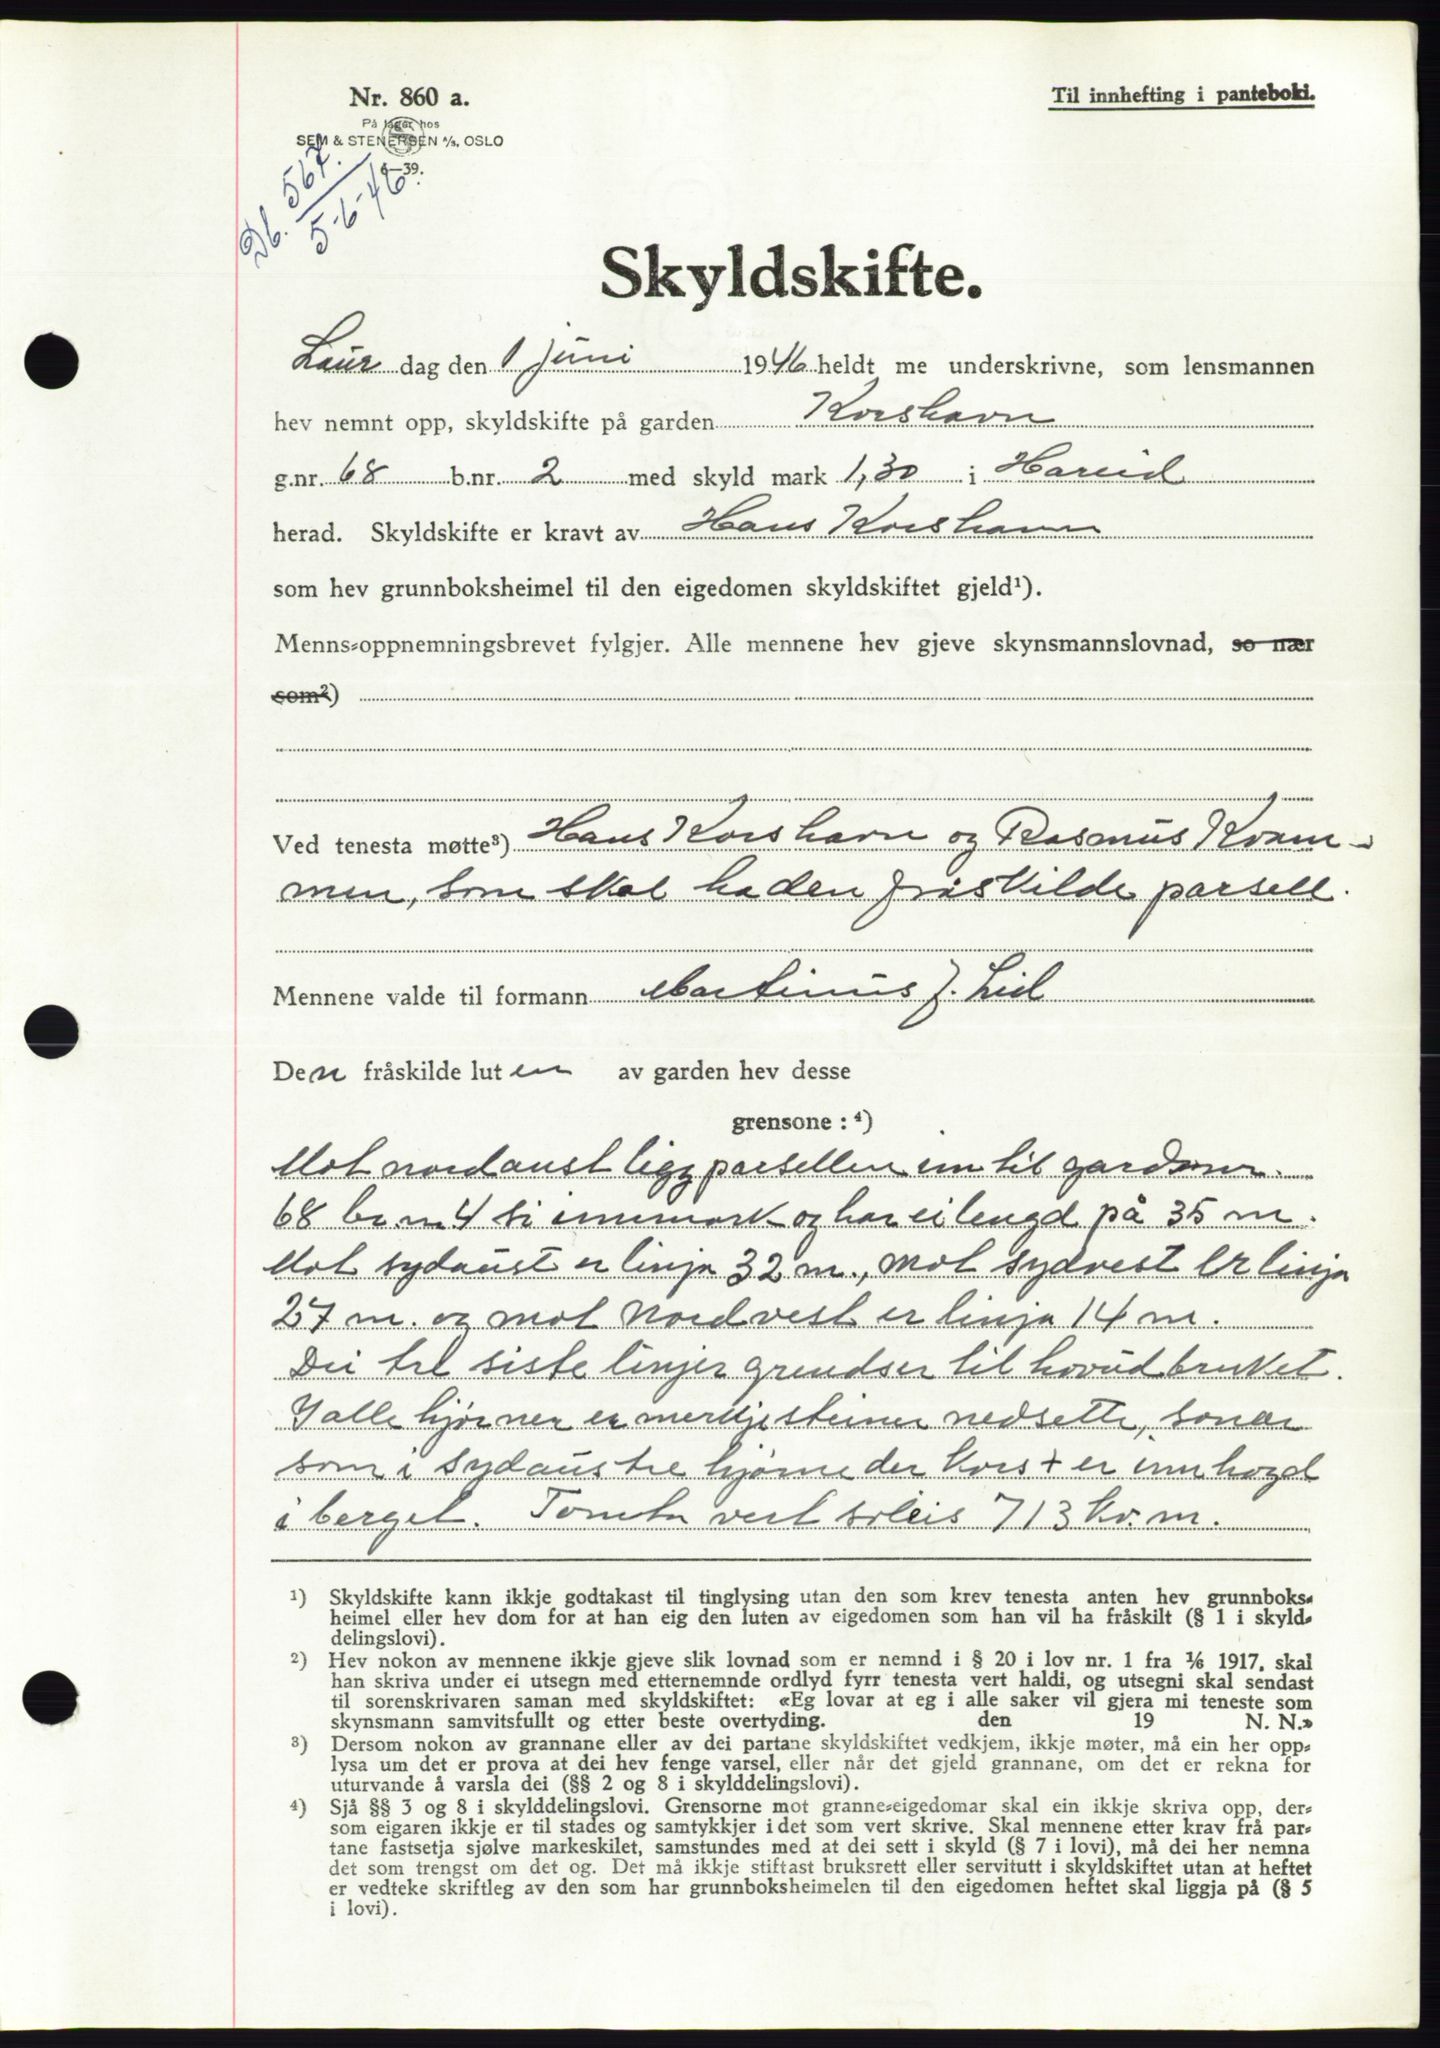 Nr. 860 a.
På lager hos
SEM & STENERSEN A/S, OSLO
6—39.
Til innhefting i panteboki.
Db. 567.
5-6-46.
Skyldskifte.
Laur dag den 1 juni 1946 heldt me underskrivne, som lensmannen
hev nemnt opp, skyldskifte på garden Korshavn
g.nr. 68 b.nr. 2 med skyld mark 1,30 i Hareid
herad. Skyldskifte er kravt av Hans Korshavn
som hev grunnboksheimel til den eigedomen skyldskiftet gjeld¹).
Menns=oppnemningsbrevet fylgjer. Alle mennene hev gjeve skynsmannslovnad, so nær
som²)
Ved tenesta møtte³) Hans Korshavn og Rasmus Kvam-
men, som skal ha den fråskilde parsell.
Mennene valde til formann Martinus J. Lid
Den fråskilde luten av garden hev desse
grensone : ⁴)
Mot nordaust ligg parsellen inn til gardsnr.
68 br.nr 4 si innmark og har ei lengd på 35 m.
Mot sydaust er linja 32 m., mot sydvest er linja
27 m. og mot Nordvest er linja 14 m.
Dei tre siste linjer grendser til hovudbruket.
I alle hjørner er merkjesteiner nedsette, sonær
som i sydaustre hjørne der kors + er innhogd
i berget. Tomta vert soleis 713 kv. m.
¹) Skyldskifte kann ikkje godtakast til tinglysing utan den som krev tenesta anten hev grunnboks=
heimel eller hev dom for at han eig den luten av eigedomen som han vil ha fråskilt (§ 1 i skyld=
delingslovi).
²) Hev nokon av mennene ikkje gjeve slik lovnad som er nemnd i § 20 i lov nr. 1 fra 1/6 1917, skal
han skriva under ei utsegn med etternemnde ordlyd fyrr tenesta vert haldi, og utsegni skal sendast
til sorenskrivaren saman med skyldskiftet: «Eg lovar at eg i alle saker vil gjera mi teneste som
skynsmann samvitsfullt og etter beste overtyding. den 19 N. N.»
³) Dersom nokon av grannane eller av dei partane skyldskiftet vedkjem, ikkje møter, må ein her opp=
lysa um det er prova at dei hev fenge varsel, eller når det gjeld grannane, om det er rekna for
uturvande å varsla dei (§§ 2 og 8 i skylddelingslovi).
⁴) Sjå §§ 3 og 8 i skylddelingslovi. Grensorne mot granne=eigedomar skal ein ikkje skriva opp, der=
som eigaren ikkje er til stades og samtykkjer i det som vert skrive. Skal mennene etter krav frå par=
tane fastsetja sjølve markeskilet, samstundes med at dei sett i skyld (§ 7 i lovi), må dei her nemna
det som trengst om det og. Det må ikkje stiftast bruksrett eller servitutt i skyldskiftet utan at heftet
er vedteke skriftleg av den som har grunnboksheimelen til den eigedomen heftet skal liggja på (§ 5
i lovi).